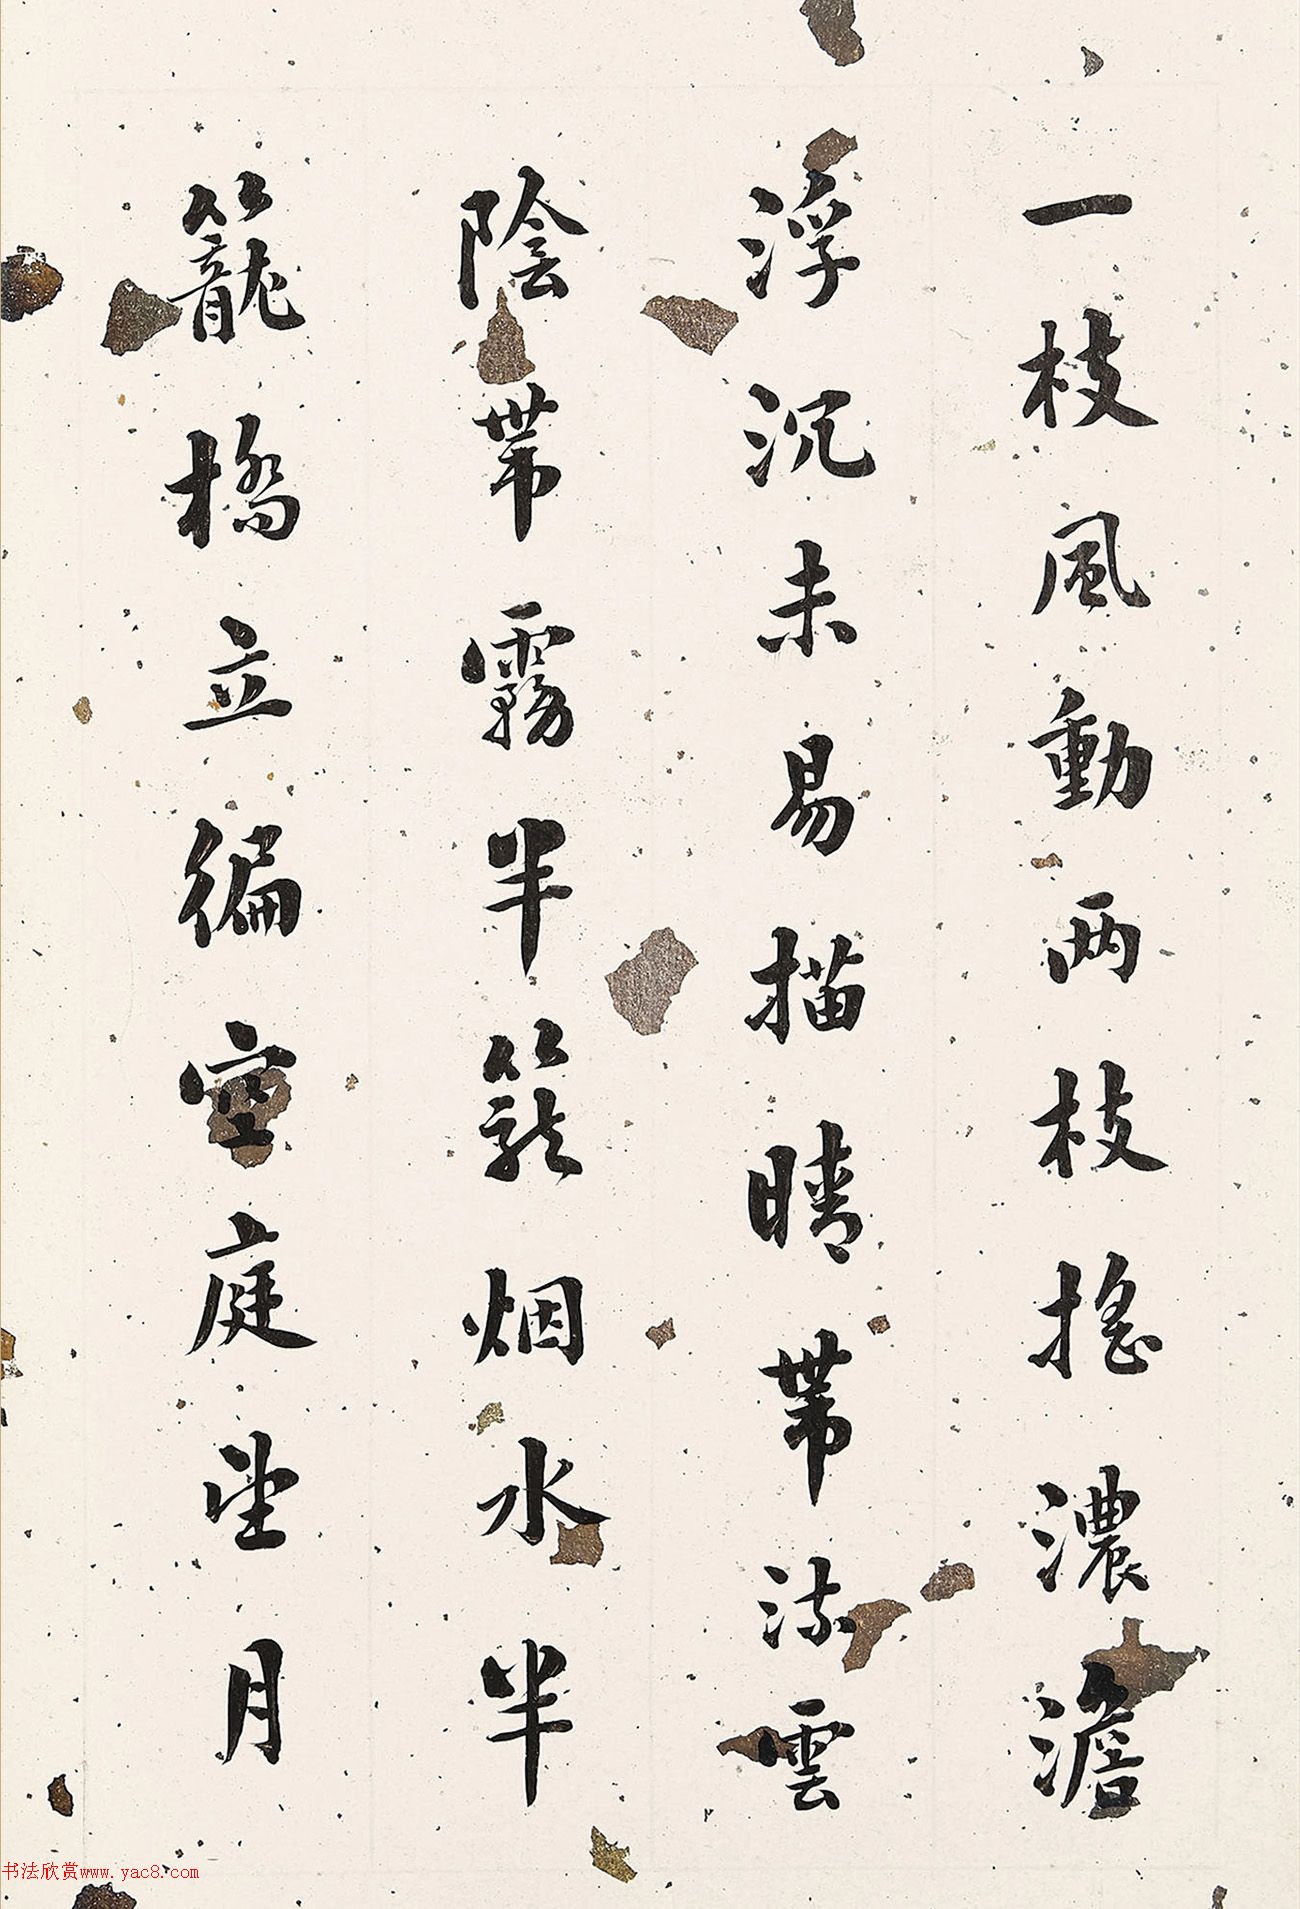 一枝風動兩枝搖濃澹
浮沉未易描晴帶流雲
陰帶霧半籠烟水半
籠橋立徧空庭坐月
书法欣赏www.yac8.com